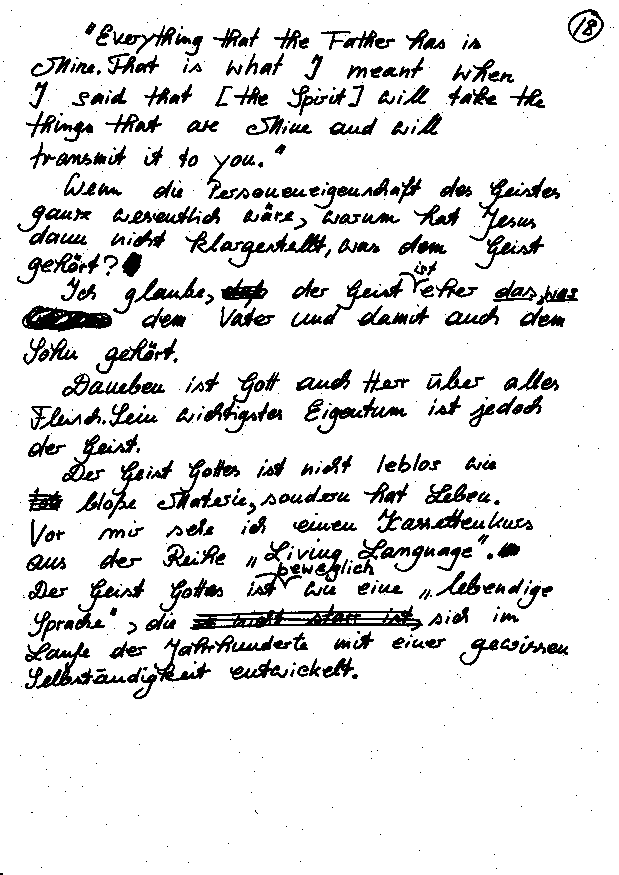 18
"Everything that the Father has is
Mine. That is what I meant when
I said that [the Spirit] will take the
things that are Mine and will
transmit it to you."
Wenn die Personeneigenschaft des Geistes
ganz wesentlich wäre, warum hat Jesus
dann nicht klargestellt, was dem Geist
gehört?
Ich glaube, daß der Geist ist eher das, was
dem Vater und damit auch dem
Sohn gehört.
Daneben ist Gott auch Herr über alles
Fleisch. Sein wichtigstes Eigentum ist jedoch
der Geist.
Der Geist Gottes ist nicht leblos wie
bloße Materie, sondern hat Leben.
Vor mir sehe ich einen Kassettenkurs
aus der Reihe „Living Language".
Der Geist Gottes ist beweglich wie eine „lebendige
Sprache", die nicht starr ist, sich im
Laufe der Jahrhunderte mit einer gewissen
Selbständigkeit entwickelt.